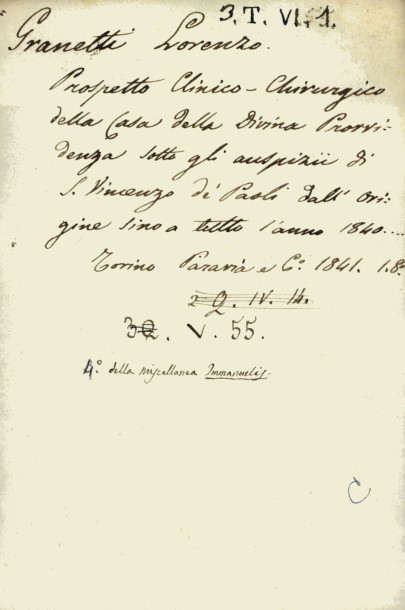 3. T. VI. 1.
Granetti Lorenzo.
Prospetto Clinico-Chirurgico
della Casa della Divina Provvi
denza sotto gli auspizii di
S. Vincenzo de' Paoli dall' ori-
gine sino a tutto l'anno 1840....
Torino Paravia e C.º 1841. 1.8º
2 Q. IV. 14.
3Q. V. 55.
4º della miscellanea Immanuelis.
C